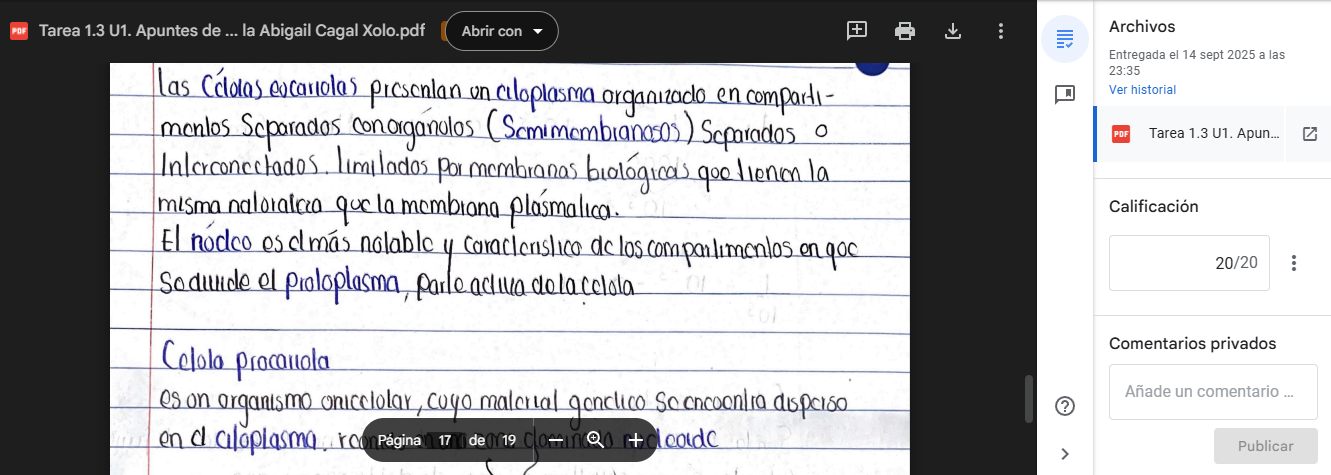 Tarea 1.3 U1. Apuntes de ... la Abigail Cagal Xolo.pdf
Abrir con
las Células eucariotas presentan un citoplasma organizado en comparti-
mentos Separados con orgánulos (Semimembranosos) Separados o
Interconectados. limitados por membranas biológicas que tienen la
misma naturaleza que la membrana plásmatica.
El núcleo es el más notable y caracteristico de los compartimentos en que
Se divide el protoplasma, parte activa de la célula
Celula procariota
es un organismo unicelular, cuyo material genetico Se encuentra disperso
en el citoplasma.
nucleoide
Página 17 de 19
Archivos
Entregada el 14 sept 2025 a las
23:35
Ver historial
PDF
Tarea 1.3 U1. Apun...
Calificación
20/20
Comentarios privados
Añade un comentario ...
Publicar